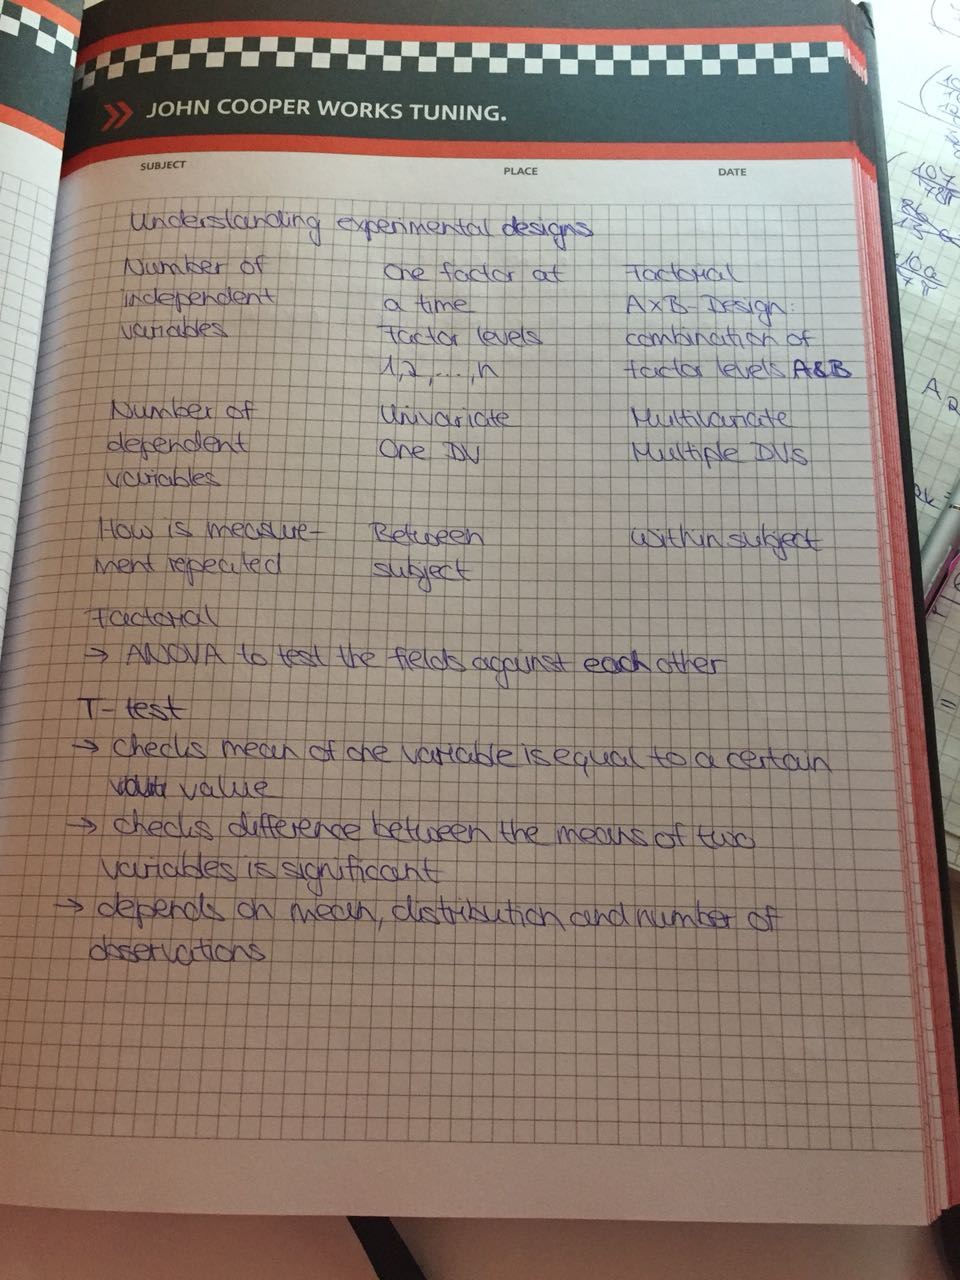 JOHN COOPER WORKS TUNING.
SUBJECT
PLACE
DATE
Understanding experimental designs
Number of
independent
variables
One factor at
a time
Factor levels
1,2,...,n
Factorial
AxB-Design:
combination of
factor levels A&B
Number of
dependent
variables
Univariate
One DV
Multivariate
Multiple DVs
How is measure-
ment repeated
Between
subject
Within subject
Factorial
→ ANOVA to test the fields against each other
T-test
→ checks mean of one variable is equal to a certain
value
→ checks difference between the means of two
variables is significant
→ depends on mean, distribution and number of
observations
107
78π
86
13
100
7π
A
=